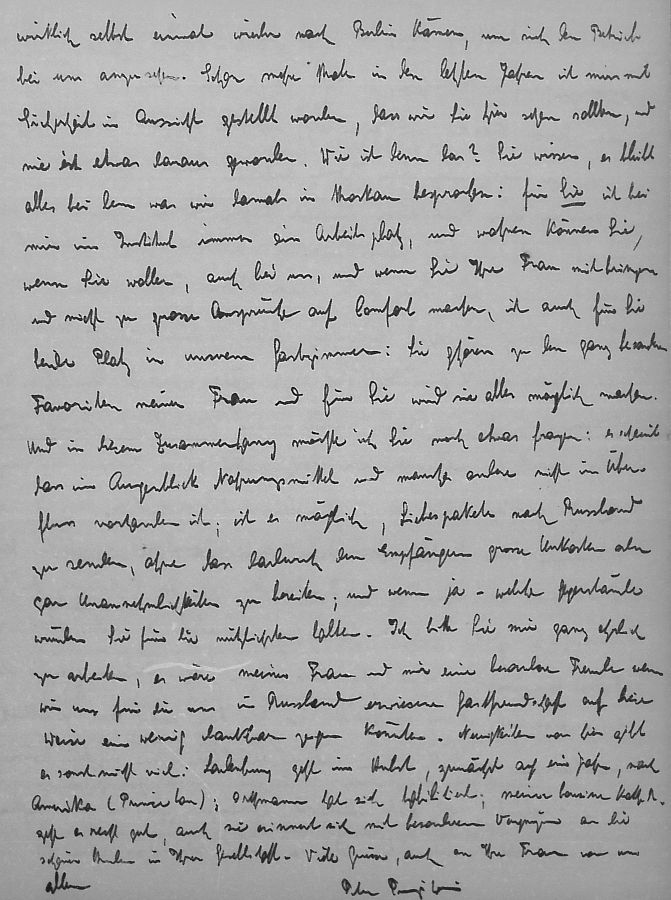 wirklich selbst einmal wieder nach Berlin kämen, um sich den Betrieb
bei uns anzusehen. Schon mehr Male in den letzten Jahren ist mir mit
Sicherheit in Aussicht gestellt worden, dass wir Sie hier sehen sollten, und
nie ist etwas daraus geworden. Wie ist denn das? Sie wissen, es bleibt
alles bei dem was wir damals in Moskau besprochen: für Sie ist bei
mir im Institut immer ein Arbeitsplatz, und wohnen können Sie,
wenn Sie wollen, auch bei uns, und wenn Sie Ihre Frau mitbringen
und nicht zu grosse Ansprüche auf Comfort machen, ist auch für Sie
beide Platz in unserem Gastzimmer: Sie gehören zu den ganz besonderen
Favoriten meiner Frau und für Sie wird sie alles möglich machen.
Und in diesem Zusammenhang möchte ich Sie noch etwas fragen: es scheint
dass im Augenblick Nahrungsmittel und manches andere nicht im Über-
fluss vorhanden ist; ist es möglich, Liebespakete nach Russland
zu senden, ohne dass dadurch dem Empfänger grosse Unkosten oder
gar Unannehmlichkeiten zu bereiten; und wenn ja - welche Gegenstände
würden Sie für die nützlichsten halten. Ich bitte Sie mir ganz ehrlich
zu antworten, es wäre meiner Frau und mir eine besondere Freude wenn
wir uns für die uns in Russland erwiesene Gastfreundschaft auf diese
Weise ein wenig dankbar zeigen könnten. Neuigkeiten von hier gibt
es sonst nicht viel: Ladenburg geht im Herbst, zunächst auf ein Jahr, nach
Amerika (Princeton); Orthmann hat sich habilitiert; meiner Cousine Kath. R.
geht es recht gut, auch sie erinnert sich mit besonderem Vergnügen an die
schönen Stunden in Ihrer Gesellschaft. Viele Grüsse, auch an Ihre Frau von uns
allen
Peter Pringsheim